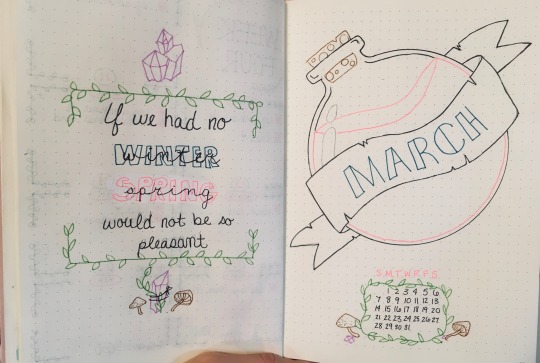 If we had no
WINTER
winter
SPRING
spring
would not be so
pleasant
MARCH
S.M.T.W.R.F.S.
1 2 3 4 5 6
7 8 9 10 11 12 13
14 15 16 17 18 19 20
21 22 23 24 25 26 27
28 29 30 31